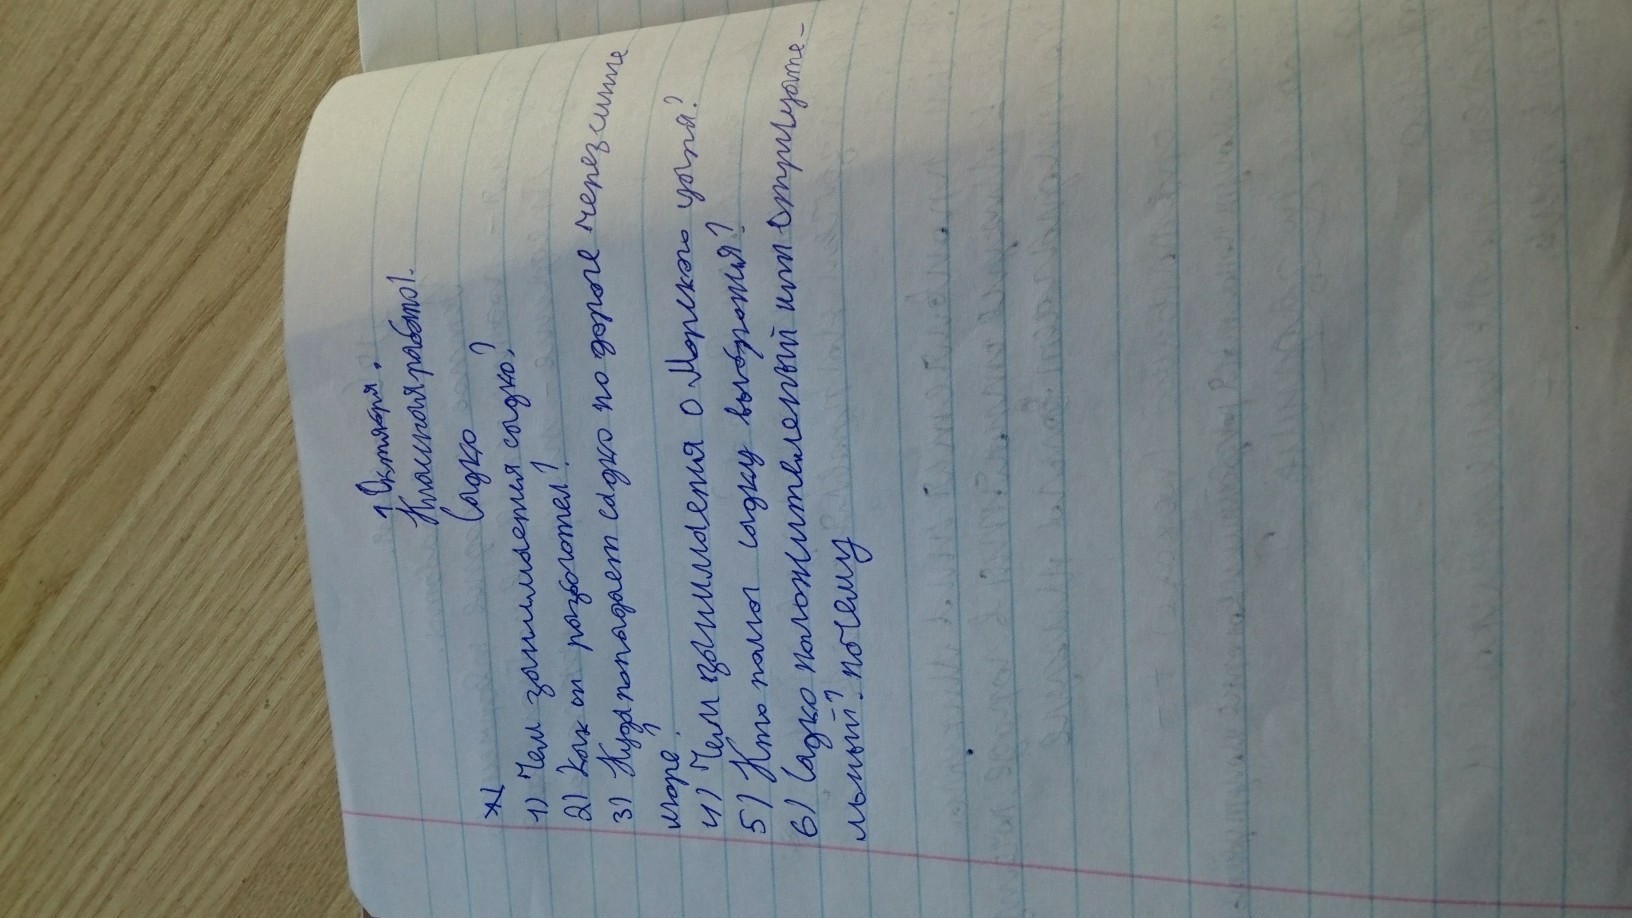 1 Октября.
Классная работа.
Садко
1) Чем занимается садко?
2) Как он разбогател?
3) Куда попадает садко по дороге через синие
море.
4) Чем занимаеця о Морского царя?
5) Кто помог садку выбраться?
6) Садко положителеный или отрицате-
льный? почему